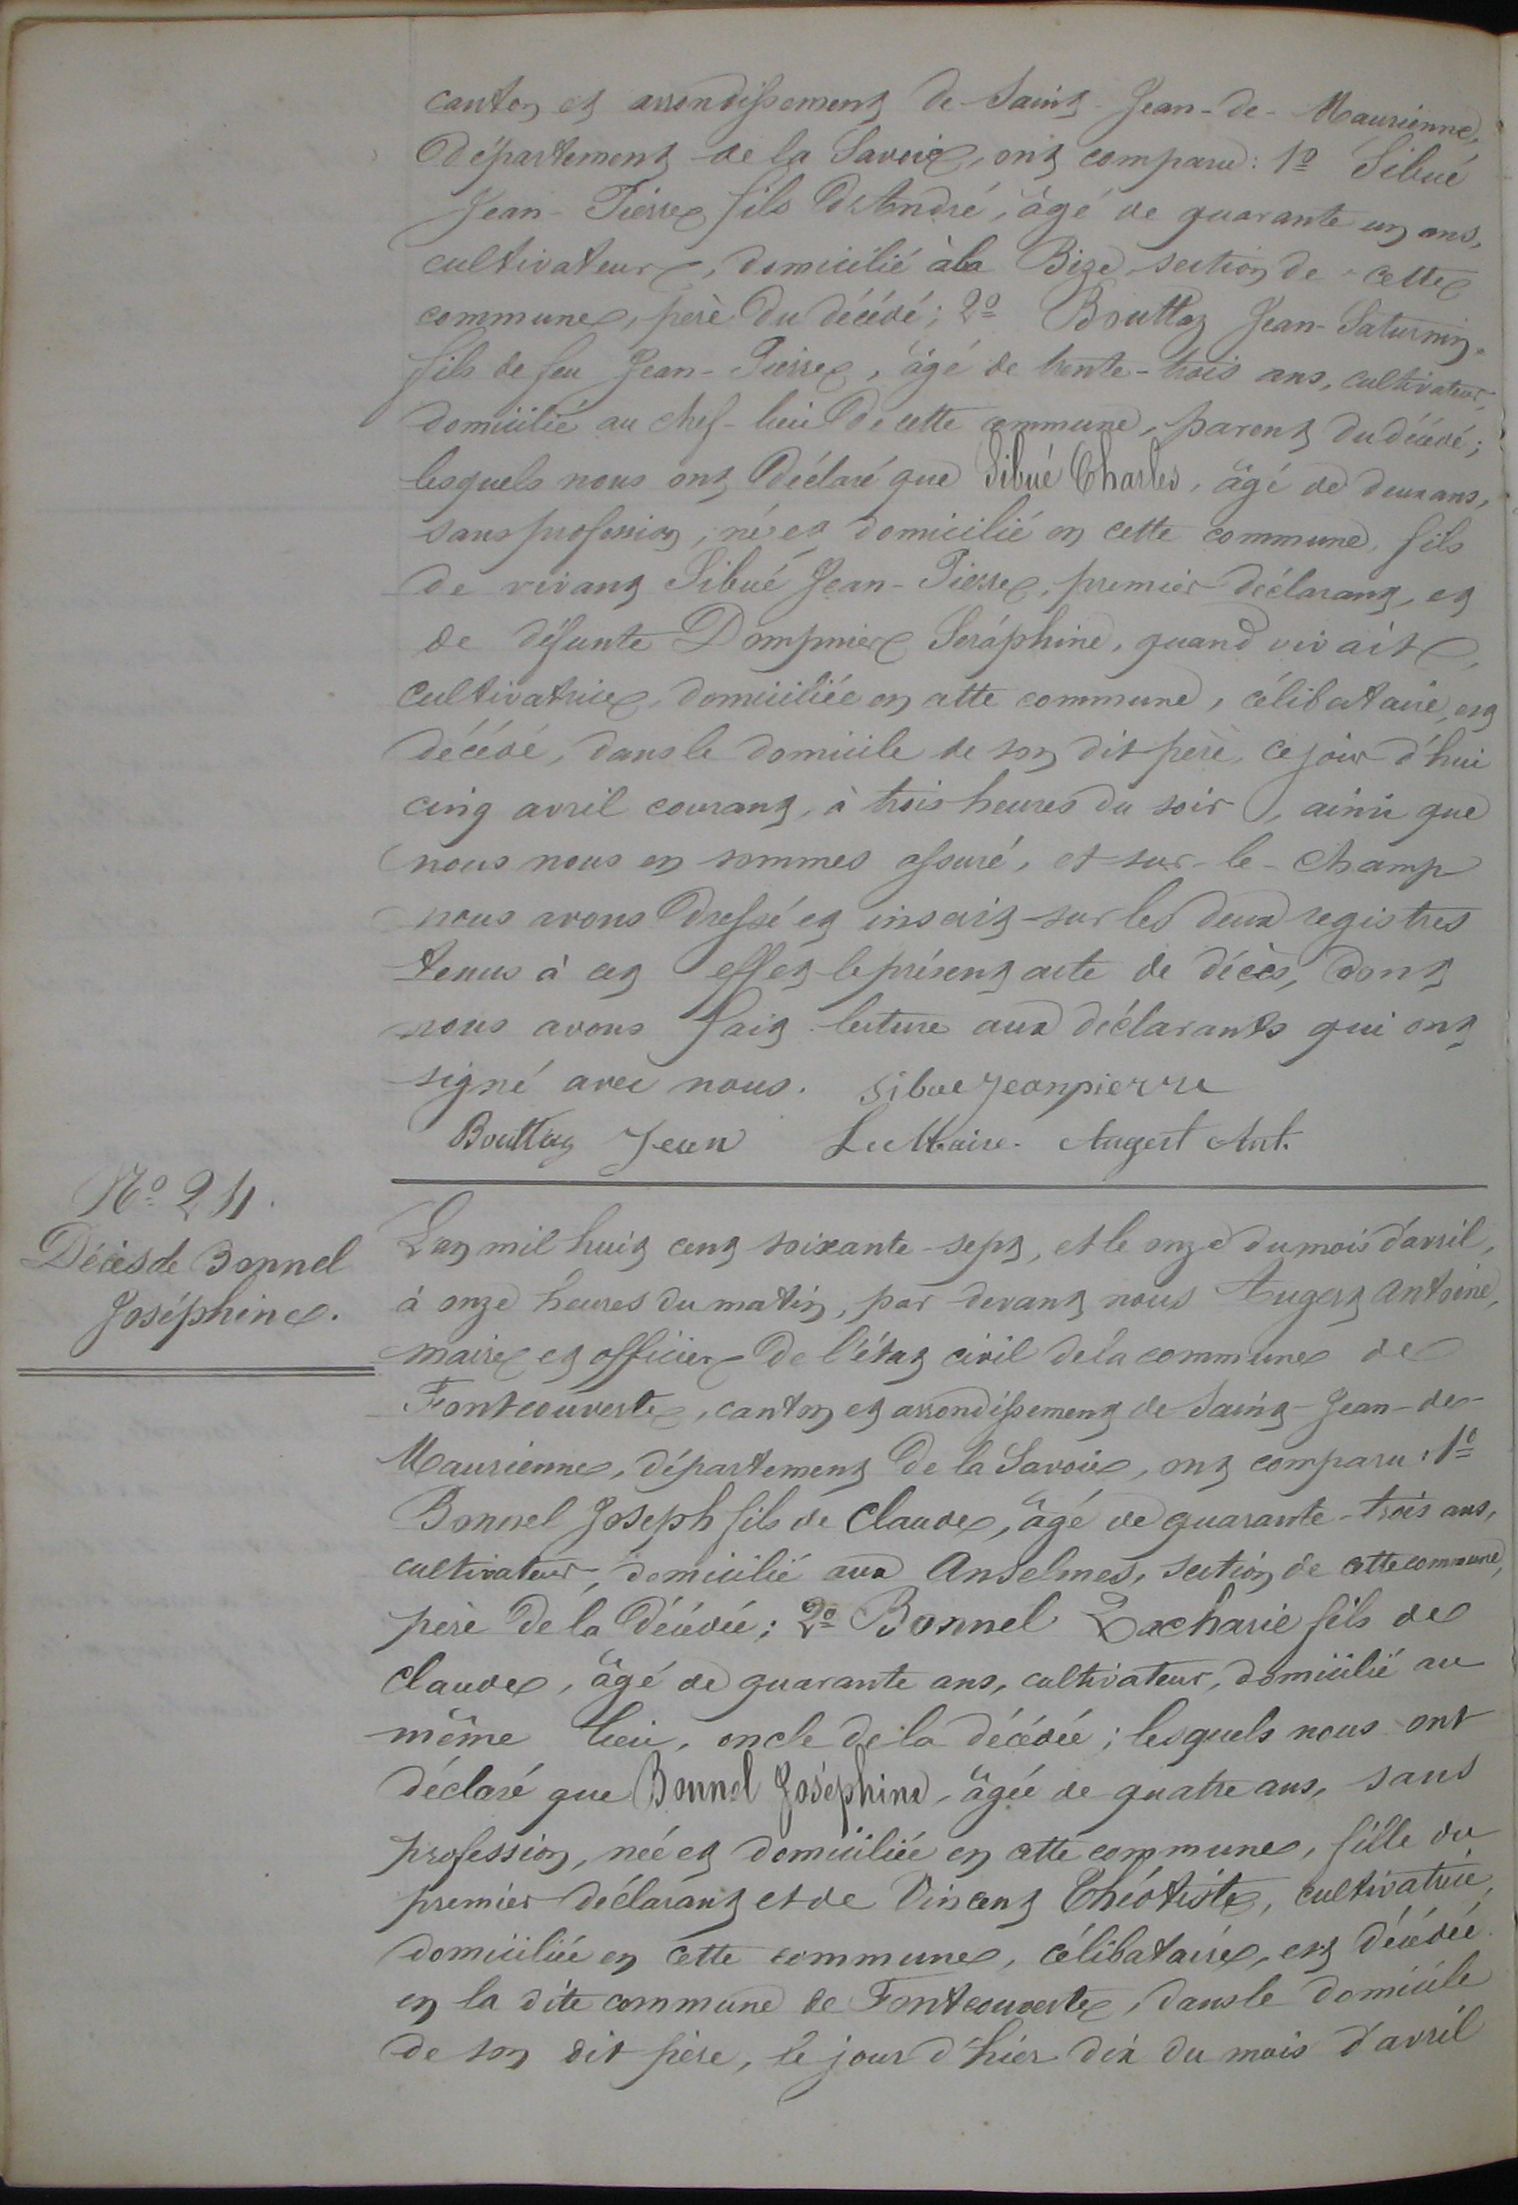 canton et arrondissement de Saint-Jean-de-Maurienne,
département de la Savoie, ont comparu: 1º Sibué
Jean-Pierre fils d'André, âgé de quarante un ans,
cultivateur, domicilié à la Bize, section de cette
commune, père du décédé; 2º Bouttaz Jean-Saturnin,
fils de feu Jean-Pierre, âgé de trente-trois ans, cultivateur,
domicilié au chef-lieu de cette commune, parent du décédé;
lesquels nous ont déclaré que Sibué Charles, âgé de deux ans,
sans profession, né et domicilié en cette commune, fils
de vivant Sibué Jean-Pierre, premier déclarant, et
de défunte Dompnier Séraphine, quand vivait,
cultivatrice, domiciliée en cette commune, célibataire, est
décédé, dans le domicile de son dit père, ce jour d'hui
cinq avril courant, à trois heures du soir, ainsi que
nous nous en sommes assuré, et sur-le-champ
nous avons dressé et inscrit sur les deux registres
tenus à cet effet le présent acte de décès, dont
nous avons fait lecture aux déclarants qui ont
signé avec nous. Sibue Jeanpierre
Bouttaz Jean Le Maire. Augert Ant.
Nº 24.
Décès de Bonnel
Joséphine.
L'an mil huit cent soixante-sept, et le onze du mois d'avril,
à onze heures du matin, par devant nous Augert Antoine,
maire et officier de l'état civil de la commune de
Fontcouverte, canton et arrondissement de Saint-Jean-de-
Maurienne, département de la Savoie, ont comparu: 1º
Bonnel Joseph fils de Claude, âgé de quarante-trois ans,
cultivateur, domicilié aux Anselmes, section de cette commune,
père de la décédée; 2º Bonnel Zacharie fils de
Claude, âgé de quarante ans, cultivateur, domicilié au
même lieu, oncle de la décédée; lesquels nous ont
déclaré que Bonnel Joséphine, âgée de quatre ans, sans
profession, née et domiciliée en cette commune, fille du
premier déclarant et de Vincent Théotiste, cultivatrice,
domiciliée en cette commune, célibataire, est décédée
en la dite commune de Fontcouverte, dans le domicile
de son dit père, le jour d'hier dix du mois d'avril